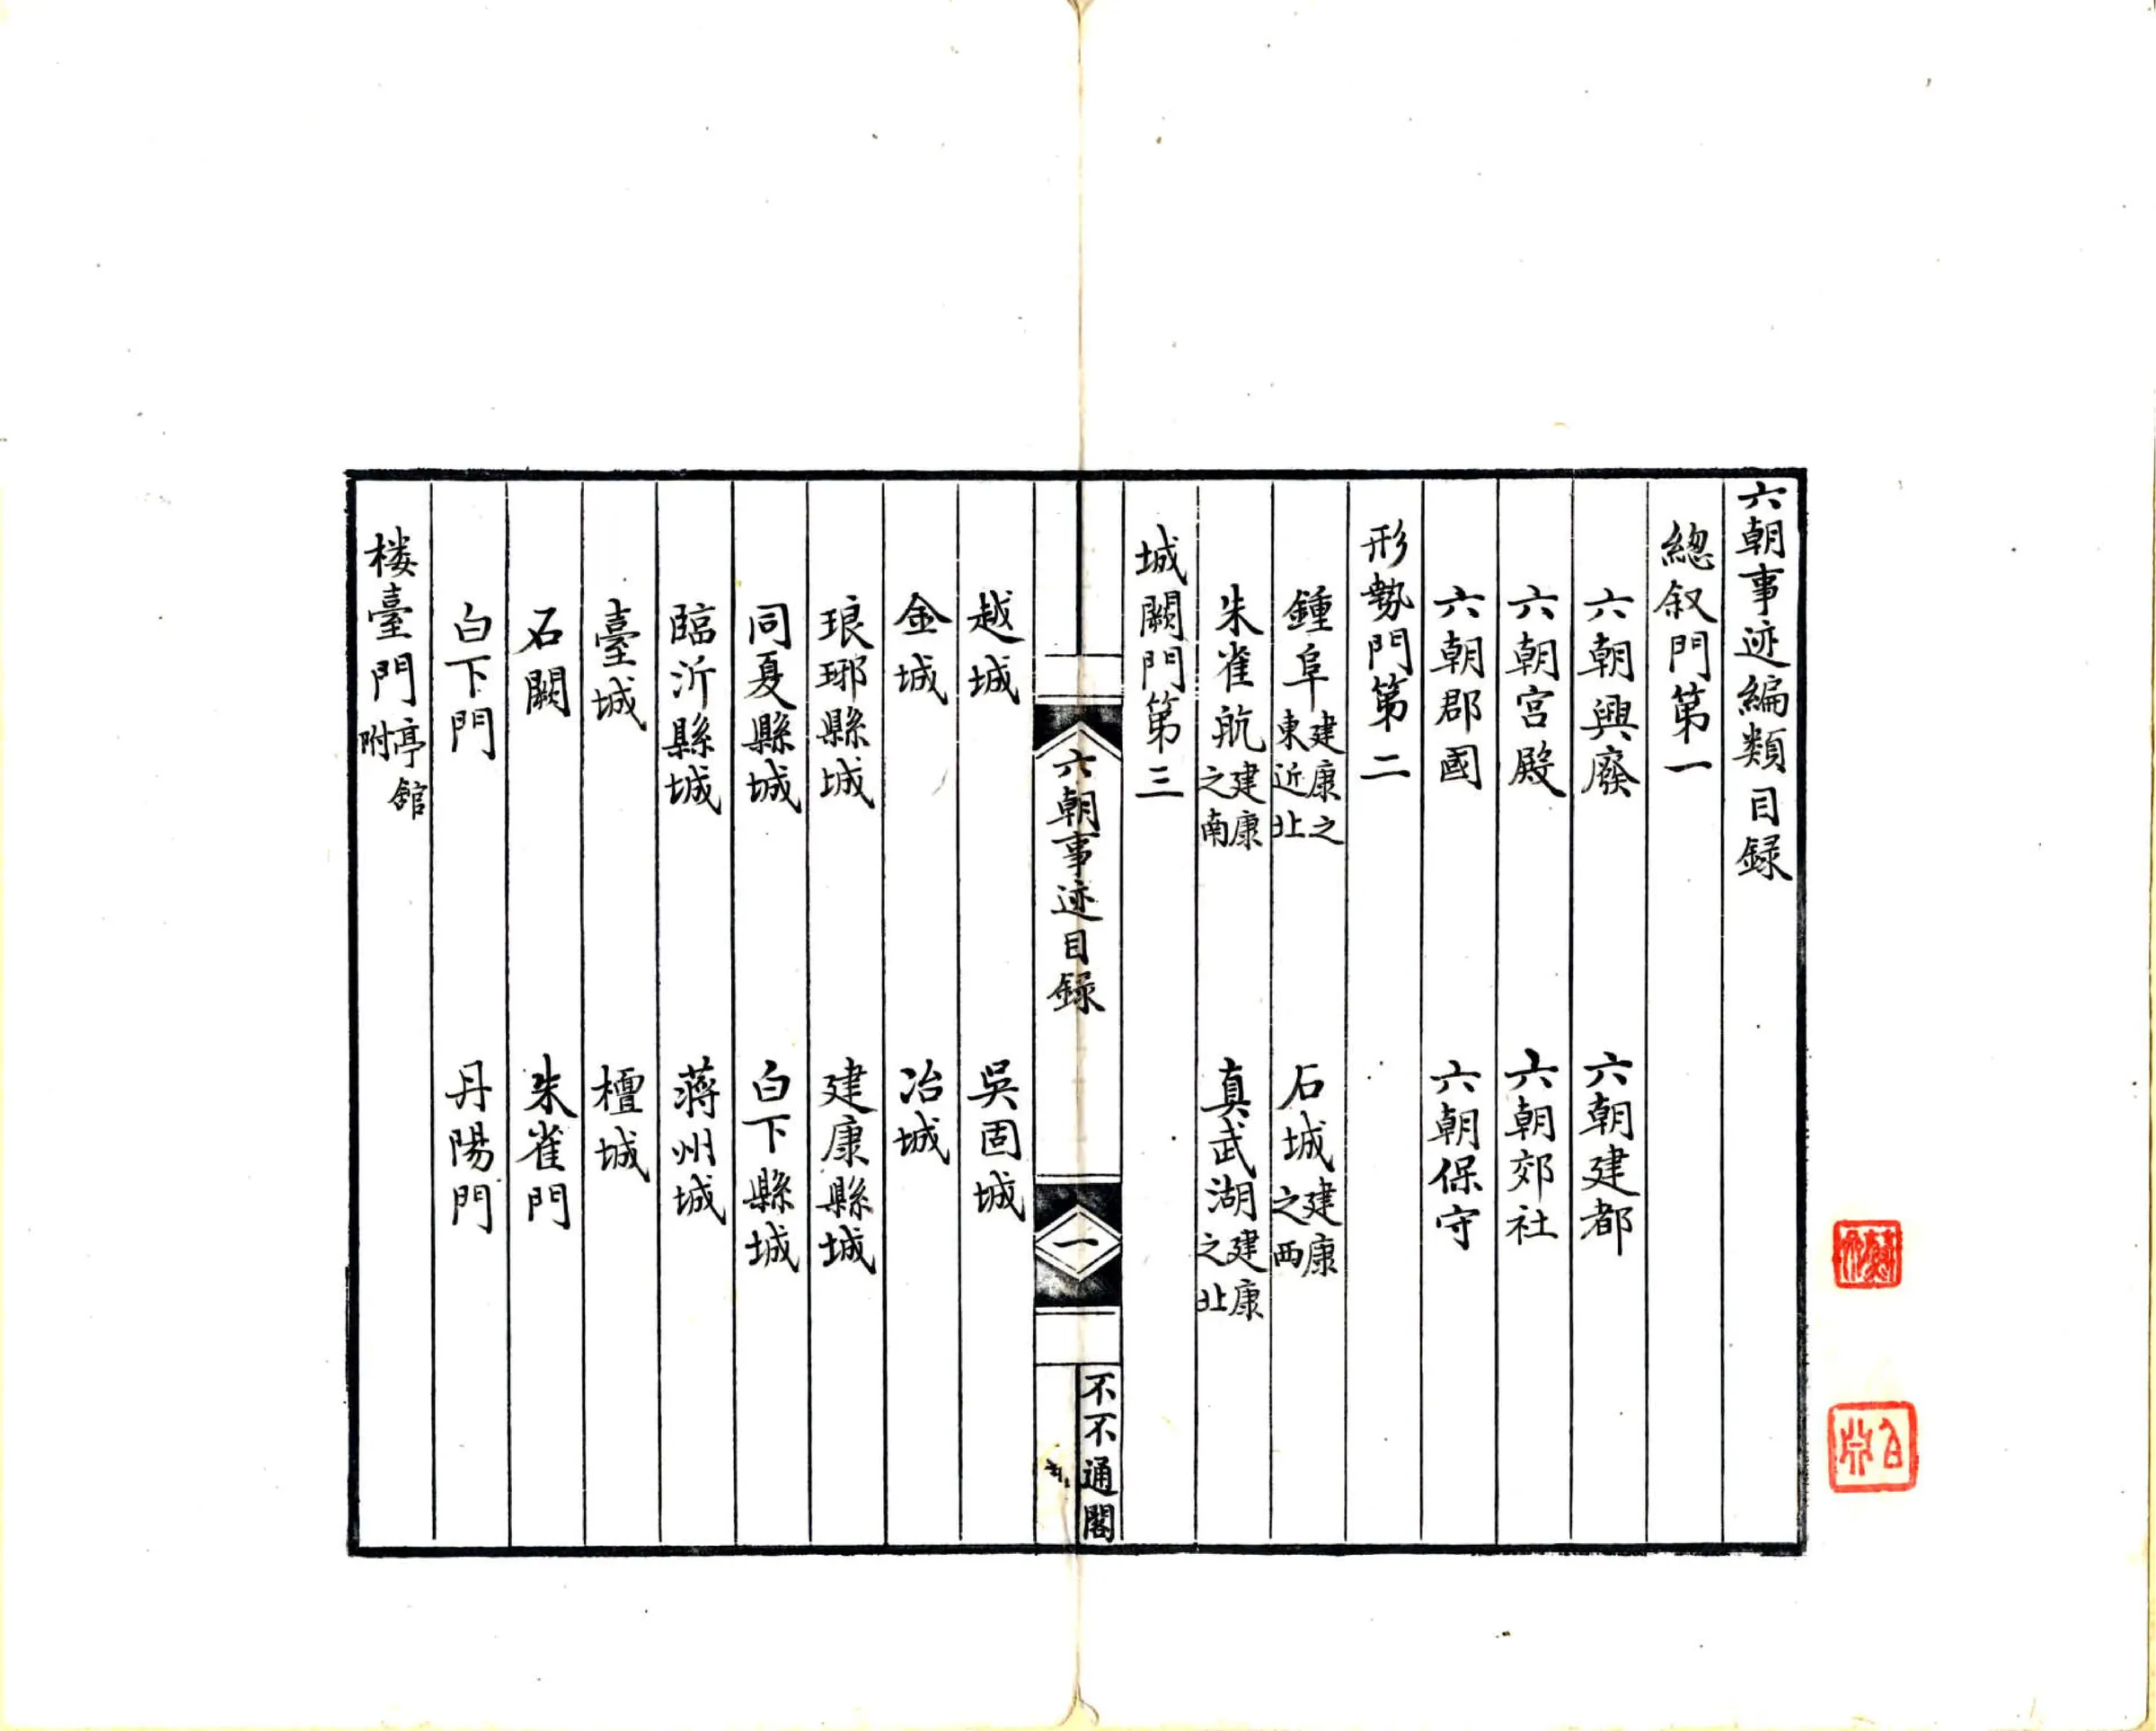 六朝事迹編類目録
總叙門第一
六朝興廢　六朝建都
六朝宮殿　六朝郊社
六朝郡國　六朝保守
形勢門第二
鍾阜建康之東近北　石城建康之西
朱雀航建康之南　真武湖建康之北
城闕門第三
六朝事迹目録
一
不不通閣
越城　吳固城
金城　冶城
琅琊縣城　建康縣城
同夏縣城　白下縣城
臨沂縣城　蔣州城
臺城　檀城
石闕　朱雀門
白下門　丹陽門
楼臺門亭舘附